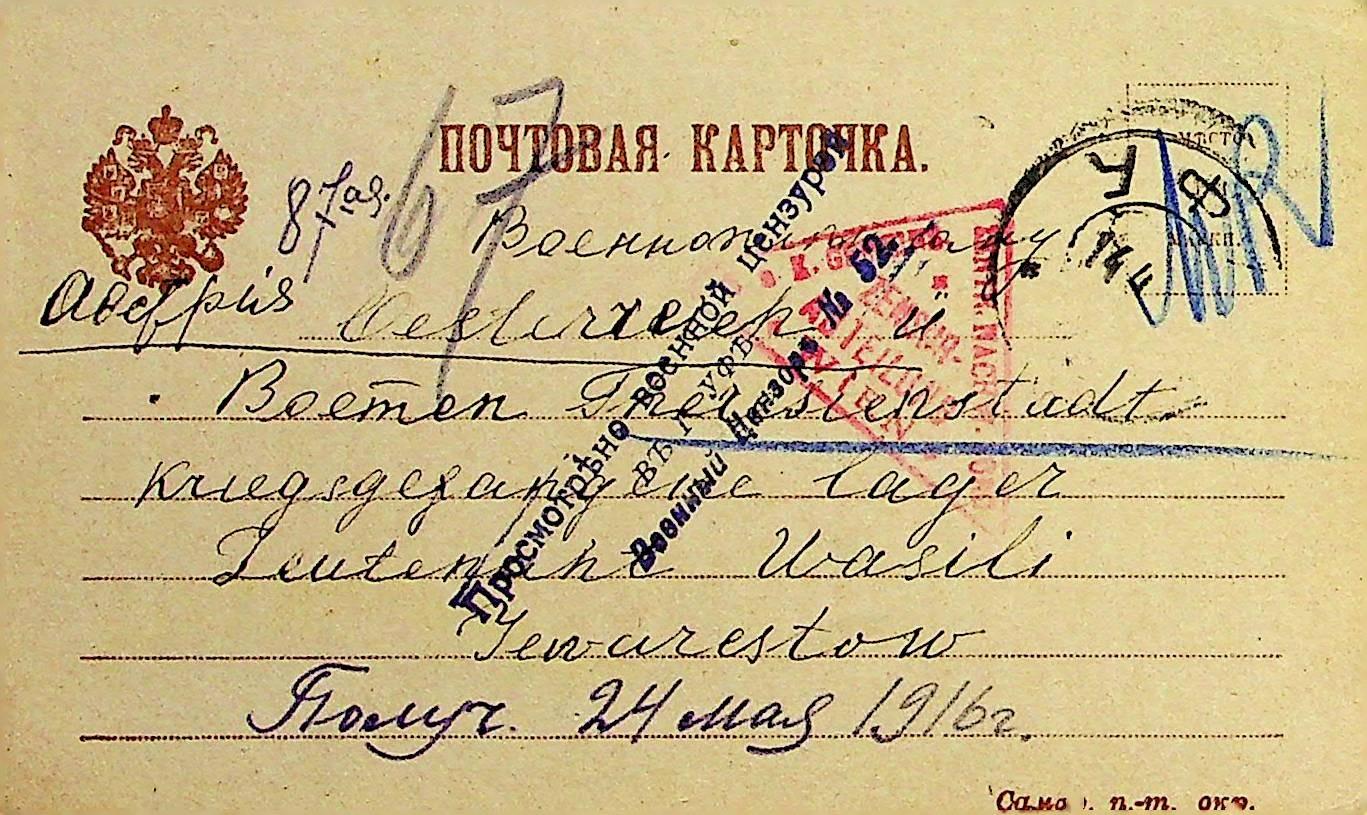 ПОЧТОВАЯ КАРТОЧКА.
МѢСТО
МАРКИ.
67
87
Военнопленному
Австрія Oesterreich
Boemen Theresienstadt
Kriegsgefangene lager
Leutenant Wasili
Jewarestow
Получ. 24 мая 1916 г.
Просмотрѣно военной цензурой
въ г. УФѢ
Военный Цензоръ № 52.
У Ф